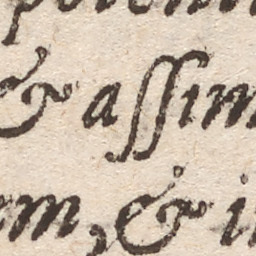 & aſſim
m, & i